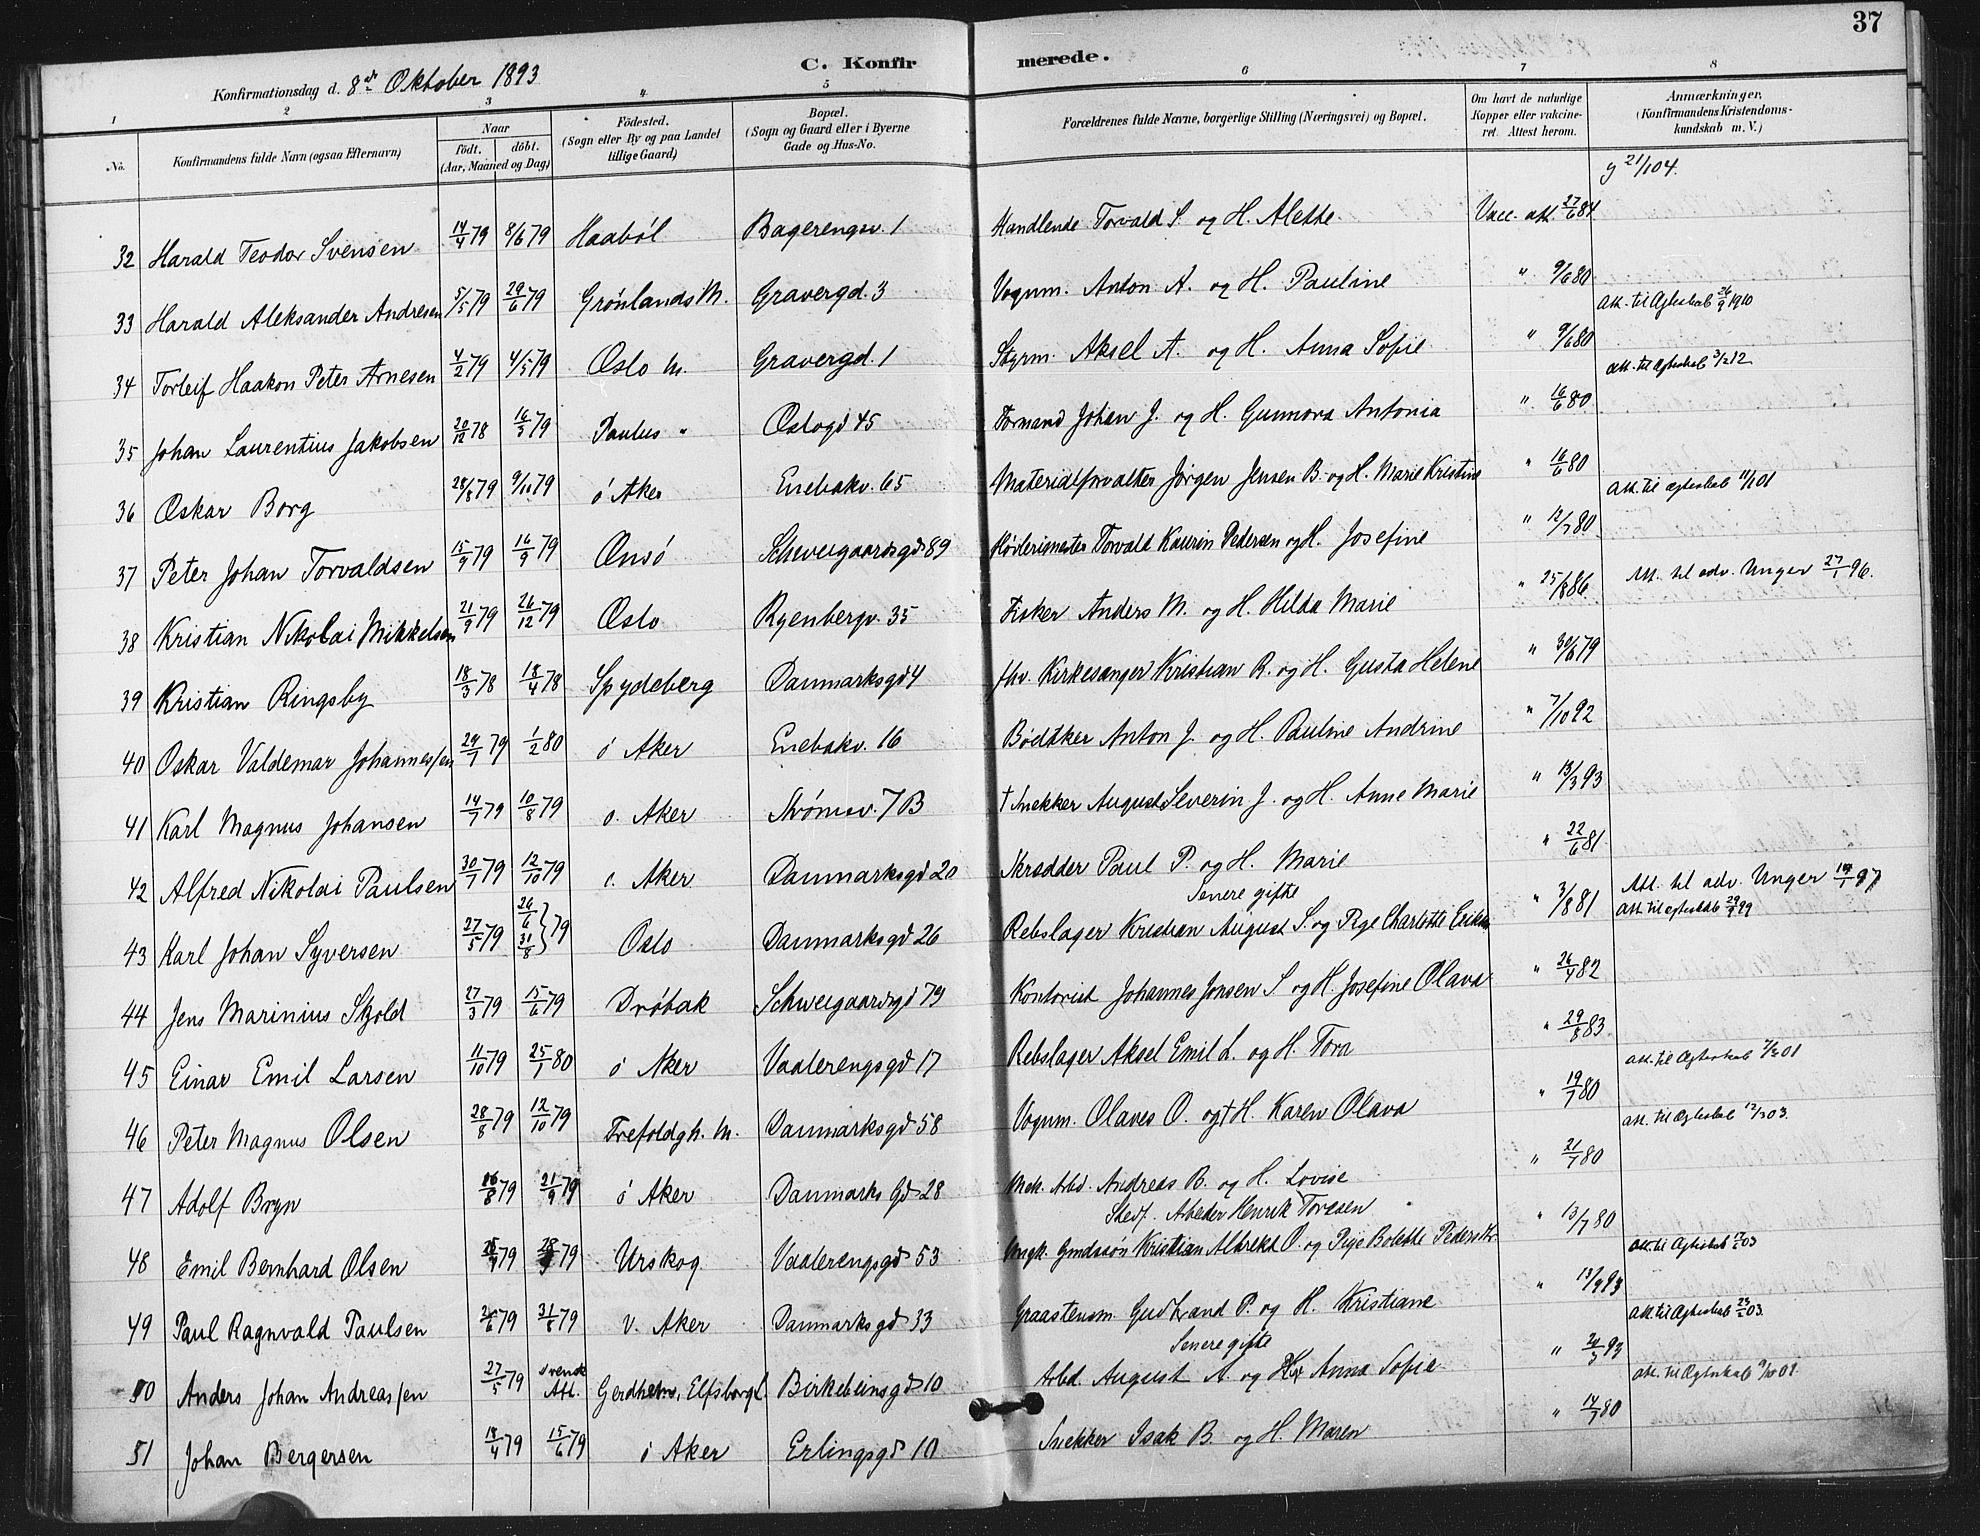 37
Konfirmationsdag d. 8de Oktober 1893
C. Konfirmerede.
1 2 3 4 5 6 7 8
No. Konfirmandens fulde Navn (ogsaa Efternavn) Naar födt. döbt. (Aar, Maaned og Dag) Födested. (Sogn eller By og paa Landet tillige Gaard) Bopæl. (Sogn og Gaard eller i Byerne Gade og Hus-No. Forældrenes fulde Navne, borgerlige Stilling (Næringsvei) og Bopæl. Om havt de naturlige Kopper eller vaccineret. Attest herom. Anmærkninger. (Konfirmandens Kristendomskundskab m. V.)
32 Harald Teodor Svensen 14/4 79 8/6 79 Haaböl Bagerengsv. 1 Handlende Torvald S. og H. Alette Vacc. att. 27/6 84 g 21/1 04.
33 Harald Aleksander Andresen 5/5 79 29/6 79 Grönlands M. Gravergd. 3 Vognm. Anton A. og H. Pauline " 9/6 80 att. til Ægteskab 26/9 1910
34 Torleif Haakon Peter Arnesen 4/2 79 4/5 79 Oslo M. Gravergd. 1 Styrm. Aksel A. og H. Anna Sofie " 9/6 80 att. til Ægteskab 3/2 12
35 Johan Laurentius Jakobsen 20/12 78 16/3 79 Paulus " Oslogd 45 Formand Johan J. og H. Gunnora Antonia " 16/6 80
36 Oskar Borg 28/8 79 9/11 79 ö Aker Enebakv. 65 Materialforvalter Jörgen Jensen B. og H. Marie Kristine " 16/6 80 Att. til ægteskab 11/1 01
37 Peter Johan Torvaldsen 15/9 79 16/9 79 Onsö Schweigaardsgd 89 Hövlerimester Torvald Kaurin Pedersen og H. Josefine " 12/7 80
38 Kristian Nikolai Mikkelsen 21/9 79 26/12 79 Oslo Ryenbergv. 35 Fisker Anders M. og H. Hilda Marie " 25/8 86 Att. til adv. Unger 27/1 96.
39 Kristian Ringsby 18/3 78 18/4 78 Spydeberg Danmarksgd 4 fhv. Kirkesanger Kristian R. og H. Gusta Helene " 30/6 79
40 Oskar Valdemar Johannessen 29/7 79 1/2 80 ö Aker Enebakv. 16 Bödtker Anton J. og H. Pauline Andrine " 7/10 92
41 Karl Magnus Johansen 14/7 79 10/8 79 ö. Aker Strömsv. 7 B † Snekker August Severin J. og H. Anne Marie " 13/3 93
42 Alfred Nikolai Paulsen 30/7 79 12/10 79 ö. Aker Danmarksgd 20 Skrædder Paul P. og H. Marie " 22/6 81
43 Karl Johan Syversen 27/5 79 26/6 31/8 } 79 Oslo Danmarksgd 26 Senere gifte Rebslager Kristian August S. og Pige Charlotte " 3/8 81 Att. til adv. Unger 19/1 97 att. til ægteskab 99
44 Jens Marinius Skjold 27/3 79 15/6 79 Dröbak Schweigaardsgd 79 Kontorist Johannes Jonsen S. og H. Josefine Olava " 26/4 82
45 Einar Emil Larsen 11/10 79 25/1 80 ö Aker Vaalerengsgd 17 Rebslager Aksel Emil L. og H. Tora " 29/8 83.
46 Peter Magnus Olsen 28/8 79 12/10 79 Trefoldgh. M. Danmarksgd 58 Vognm. Olaves O. og † H. Karen Olava " 19/7 80 att. til Ægteskab 01
47 Adolf Bryn 16/8 79 21/9 79 ö Aker Danmarks Gd 28 Mek. Arbd. Andreas B. og H. Lovise " 21/7 80 att. til Ægteskab 03.
48 Emil Bernhard Olsen 79 79 Urskog Vaalerengsgd 53 Stedf. Arbeder Henrik Toresen Ungk. Gaardssön Kristian Albrekt O. og Pige Bolette Pedersdtr. " 13/7 80
49 Paul Ragnvald Paulsen 26/6 79 31/8 79 V. Aker Danmarksgd 33 Graastensm. Gudbrand P. og H. Kristiane " 13/9 93 att. til Ægteskab 03
50 Anders Johan Andreassen 27/5 79 Svensk Att. Gerdhem, Elfsborgl. Birkebeinsgd 10 Senere gifte Arbd. August A. og H. Anna Sofie " 24/3 93 att. til Ægteskab 23/5 03.
51 Johan Bergersen 18/4 79 15/6 79 ö Aker Erlingsgd 10. Snekker Isak B. og H. Maren " 14/7 80 att. til Ægteskab 9/10 01.